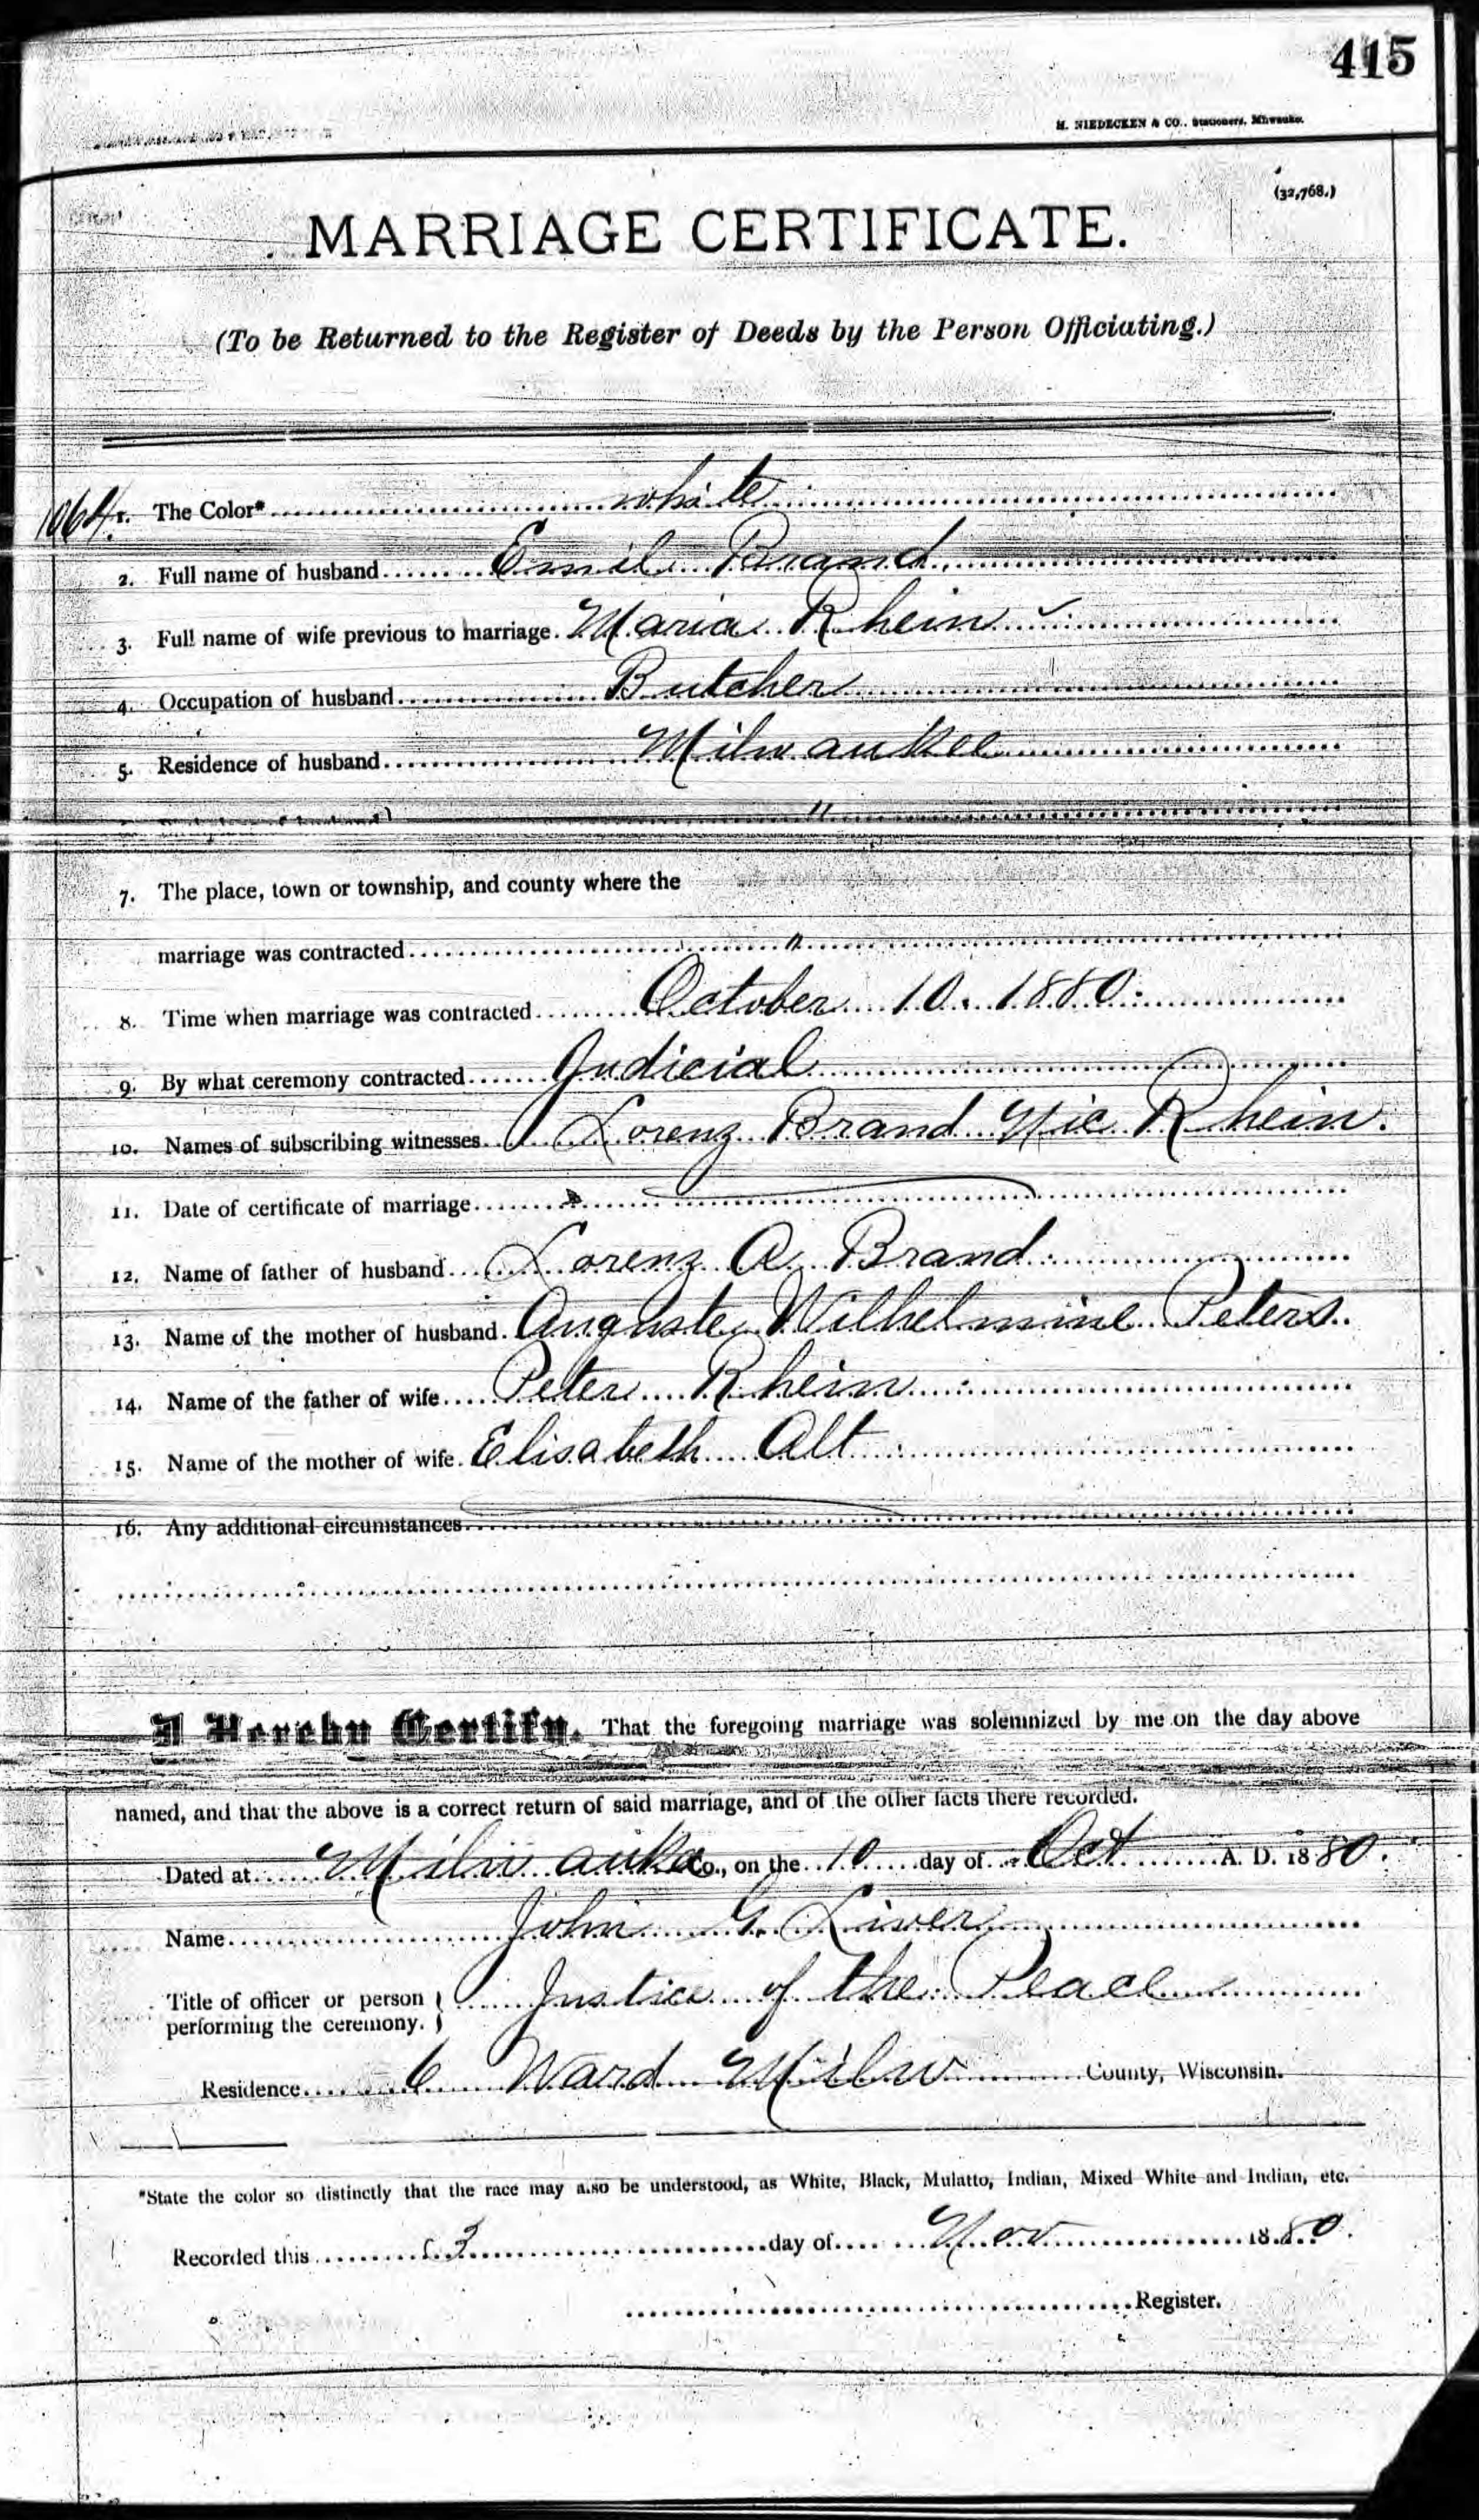 415
H. NIEDECKEN & CO., Stationers, Milwaukee.
(32,768.)
MARRIAGE CERTIFICATE.
(To be Returned to the Register of Deeds by the Person Officiating.)
1064
1. The Color* white
2. Full name of husband Emil Brand
3. Full name of wife previous to marriage. Maria Rhein
4. Occupation of husband Butcher
5. Residence of husband Milwaukee
"
7. The place, town or township, and county where the
marriage was contracted "
8. Time when marriage was contracted October 10. 1880
9. By what ceremony contracted Judicial
10. Names of subscribing witnesses Lorenz Brand Nic Rhein.
11. Date of certificate of marriage
12. Name of father of husband Lorenz A. Brand
13. Name of the mother of husband. Auguste Wilhelmine Peters.
14. Name of the father of wife Peter Rhein
15. Name of the mother of wife. Elisabeth Alt
16. Any additional circumstances
I Hereby Certify, That the foregoing marriage was solemnized by me on the day above
named, and that the above is a correct return of said marriage, and of the other facts there recorded.
Dated at Milwaukee Co., on the 10 day of Oct A. D. 1880.
Name John G. Liver
Title of officer or person
performing the ceremony. } Justice of the Peace
Residence 6 Ward Milw County, Wisconsin.
*State the color so distinctly that the race may also be understood, as White, Black, Mulatto, Indian, Mixed White and Indian, etc.
Recorded this 3 day of Nov 1880.
Register.